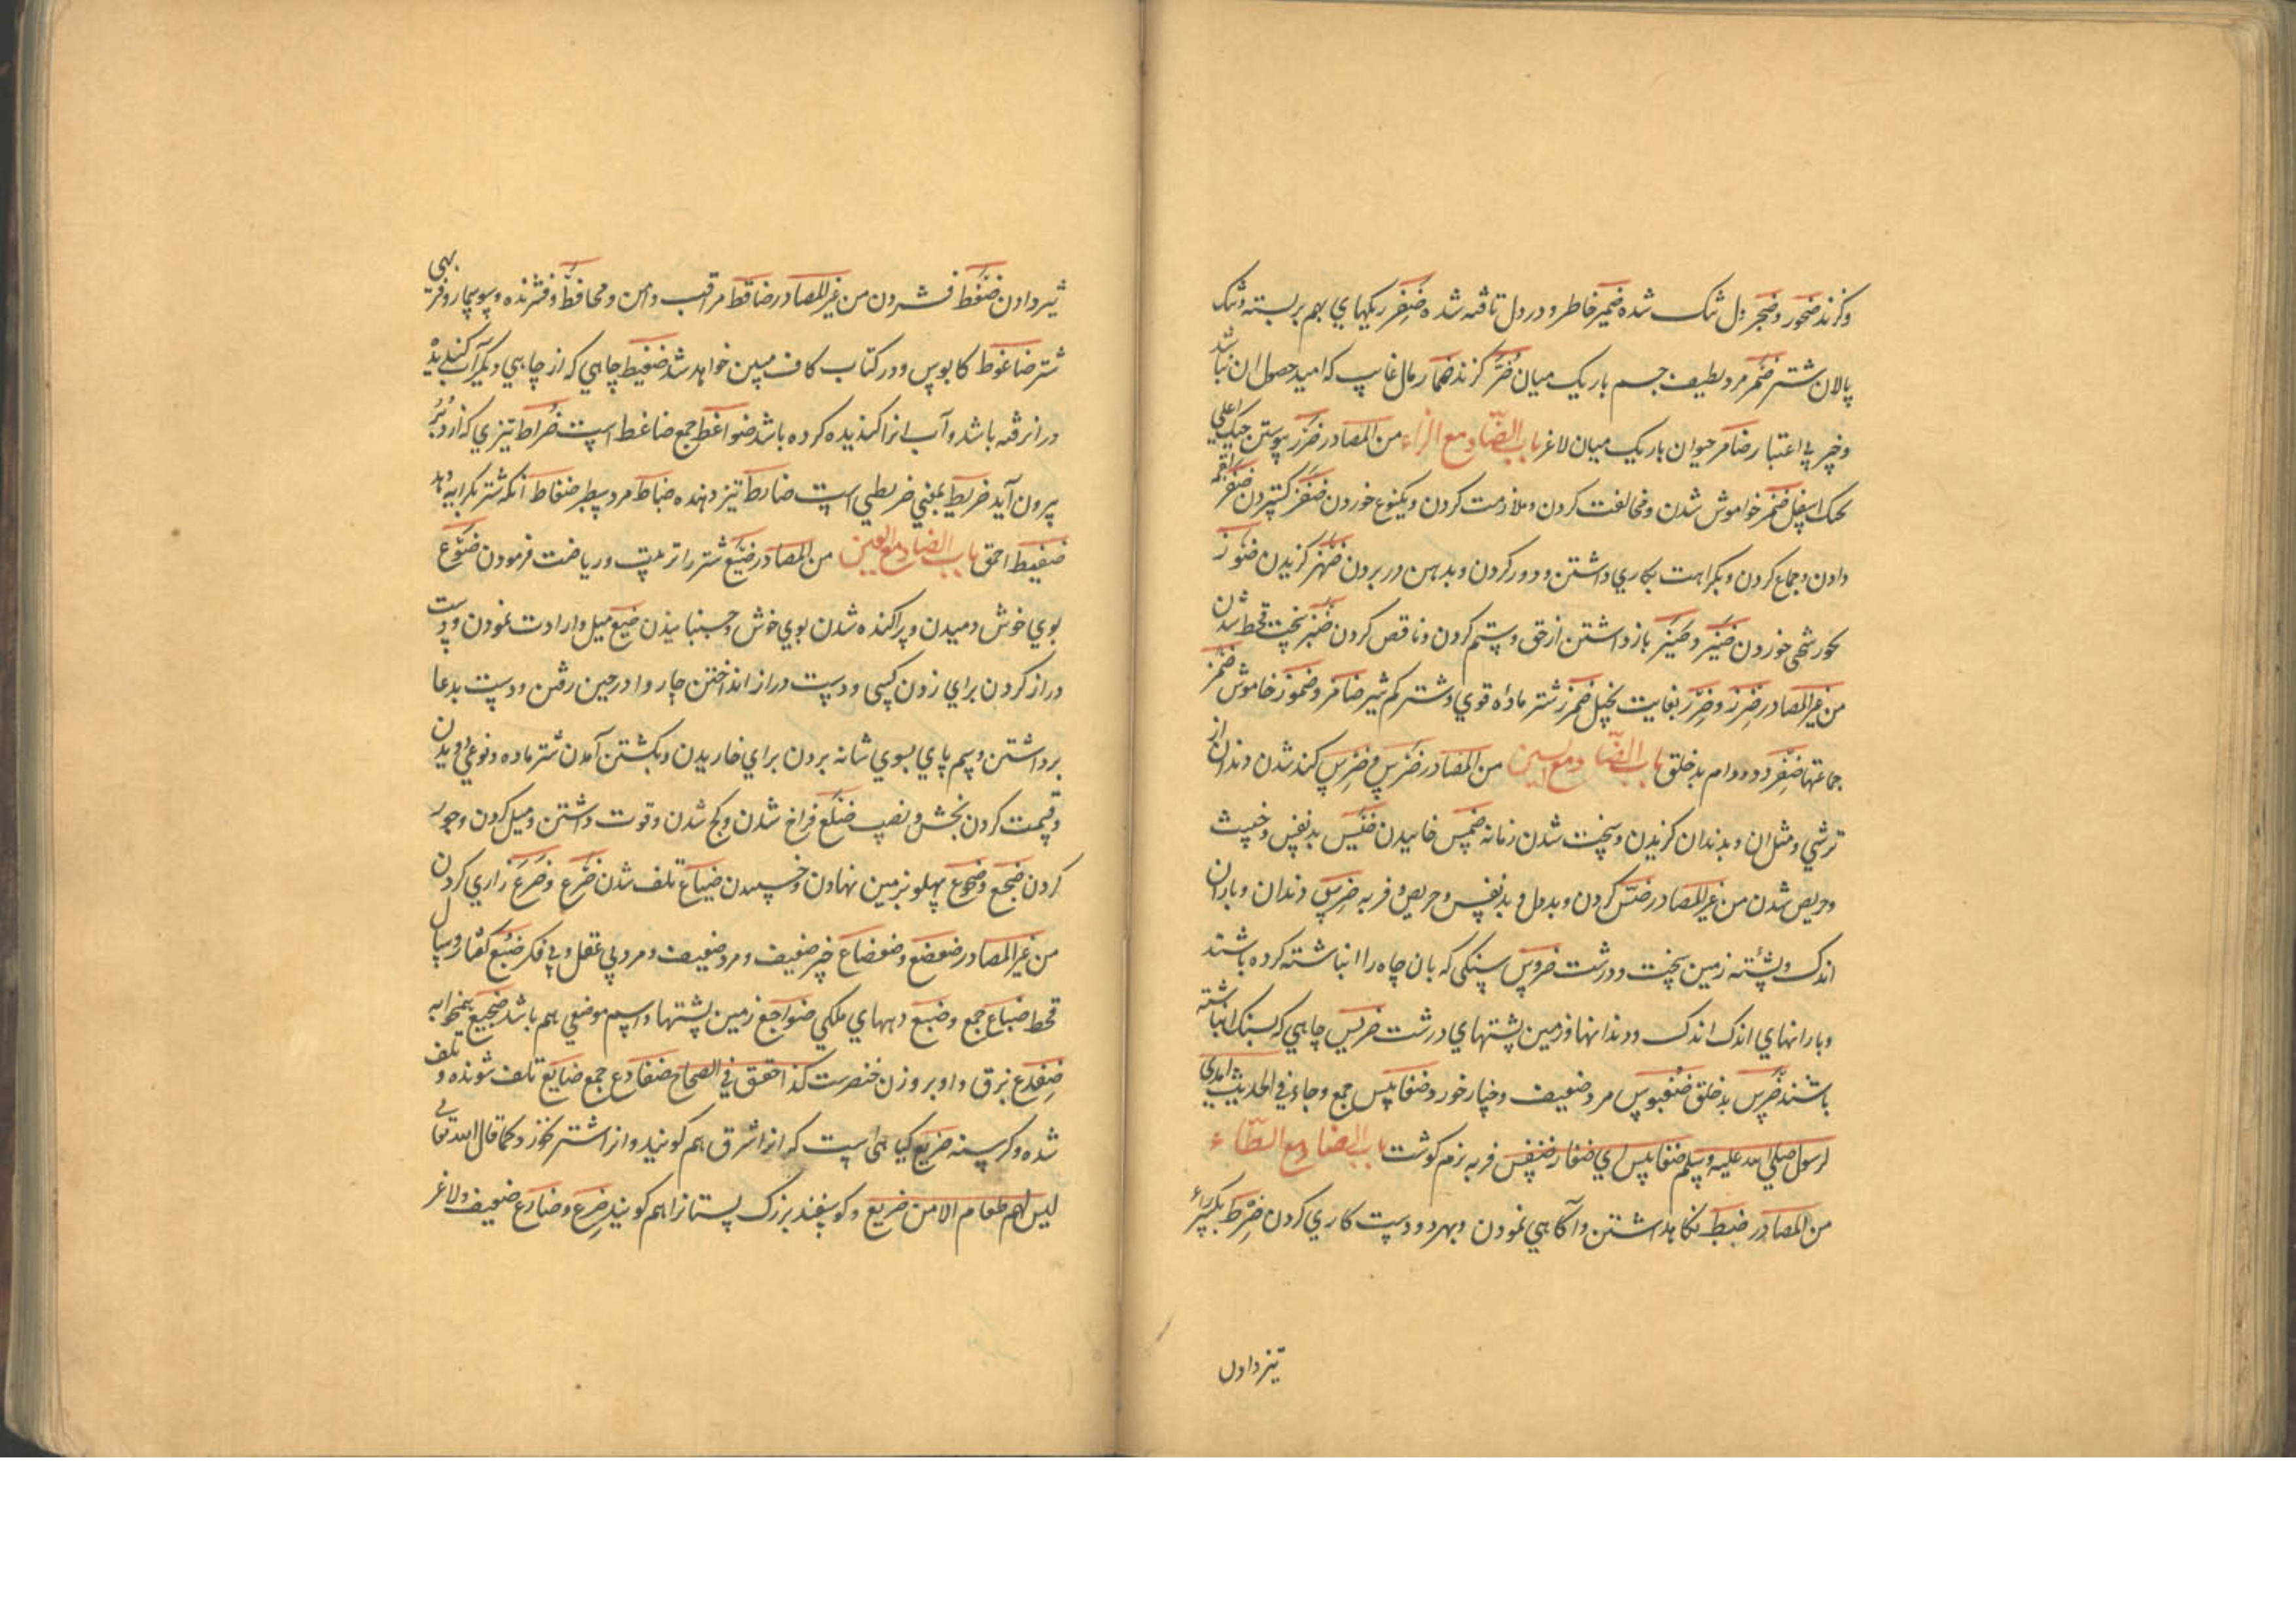 وکزند ضجور وضجر دل تنک شده ضمیر خاطر و در دل تافته شده ضفر ریکهای بهم بر بسته وتنک
پالان شتر ضمر مرد لطیف جسم باریک میان ضر کزند ضمار مال غایب که امید حصول ان نباشد
وخبر بی اعتبار ضامر حیوان باریک میان لاغر باب الضاد مع الزاء من المصادر ضزز پیوستن حنک اعلی
بحنک اسفل ضمز خواموش شدن ومخالفت کردن وملازمت کردن ویکنوع خوردن ضفز کستردن ضفز لقمه
دادن وجماع کردن وبکراهت بکاری داشتن ودور کردن وبدهن در بردن ضهز کزیدن ضوز
خوردن ضیز وضیز باز داشتن از حق وستم کردن وناقص کردن ضبز سخت قحط شدن
من غیر المصادر ضزز وضزز بغایت بخیل ضمرز شتر ماده قوی وشتر کم شیر ضامز وضموز خاموش ضمز
جماعتها ضفز دد ودام بد خلق باب الضاد مع السین من المصادر ضرس وضرس کند شدن دندان از
ترشی ومثل ان وبدندان کزیدن وسخت شدن زمانه ضمس خاییدن ضبس بد نفس وخبیث
وحریص شدن من غیر المصادر ضبس کردن وبد دل وبد نفس وحریص وفربه ضرس دندان وباران
اندک وپشته زمین سخت ودرشت ضروس سنکی که بان چاه را انباشته کرده باشند
وبارانهای اندک اندک ودندانها وزمین پشتهای درشت ضریس چاهی که بسنک انباشته
باشند ضرس بد خلق ضغبوس مرد ضعیف وخیار خورد ضغابیس جمع وجاء فی الحدیث اهدی
لرسول صلی الله علیه وسلم ضغابیس ای صغار ضنفس فربه نرم کوشت باب الضاد مع الطاء
من المصادر ضبط نکاهداشتن وآکاهی نمودن وبهر دو دست کاری کردن ضرط بکسر راء
تیز دادن
تیز دادن ضغط فشردن من غیر المصادر ضاغط مراقب وامین ومحافظ وفشرنده
شتر ضاغوط کابوس ودر کتاب کاف مبین خواهد شد ضغیط چاهی که از چاهی دیکر آب کندیده
در ان رفته باشد وآب انرا کندیده کرده باشد ضواغط جمع ضاغط است ضراط تیزی که از دبر
بیرون آید ضریط بمعنی ضریطی است ضارط تیز دهنده ضباط مرد سطبر ضفاط آنکه شتر بکرایه دهد
ضفیط احمق باب الضاد مع العین من المصادر ضبع شتر را تربیت وریاضت فرمودن ضوع
بوی خوش دمیدن وپراکنده شدن بوی خوش وجنبانیدن ضبع میل وارادت نمودن ودست
دراز کردن برای زدن کسی ودست دراز انداختن چاروا در حین رفتن ودست بدعا
برداشتن وسم پای بسوی شانه بردن برای خاریدن وبکشتن آمدن شتر ماده ونوعی دویدن
وقسمت کردن بخش ونصیب ضلع فراخ شدن وکج شدن وقوت داشتن ومیل کردن وجور
کردن ضجع وضجوع پهلو بزمین نهادن وخسپیدن ضیاع تلف شدن ضرع وضرع زاری کردن
من غیر المصادر ضعضع وضعضاع خبر ضعیف ومرد ضعیف ومرد بی عقل وبی فکر ضبع کفتار وسال
قحط ضباع جمع وضبع دیههای ملکی ضواجع زمین پشتها واسم موضعی هم باشد ضجیع همخوابه
ضفدع بزق داو بر وزن خنصرست کذا حقق فی الصحاح ضفادع جمع ضایع تلف شونده وتلف
شده وکرسنه ضریع کیاهی است که انرا شرق هم کویند وانرا شتر نخورد کما قال الله تعالی
لیس لهم طعام الا من ضریع وکوسفند بزرک پستانرا هم کویند ضرع وضارع ضعیف ولاغر